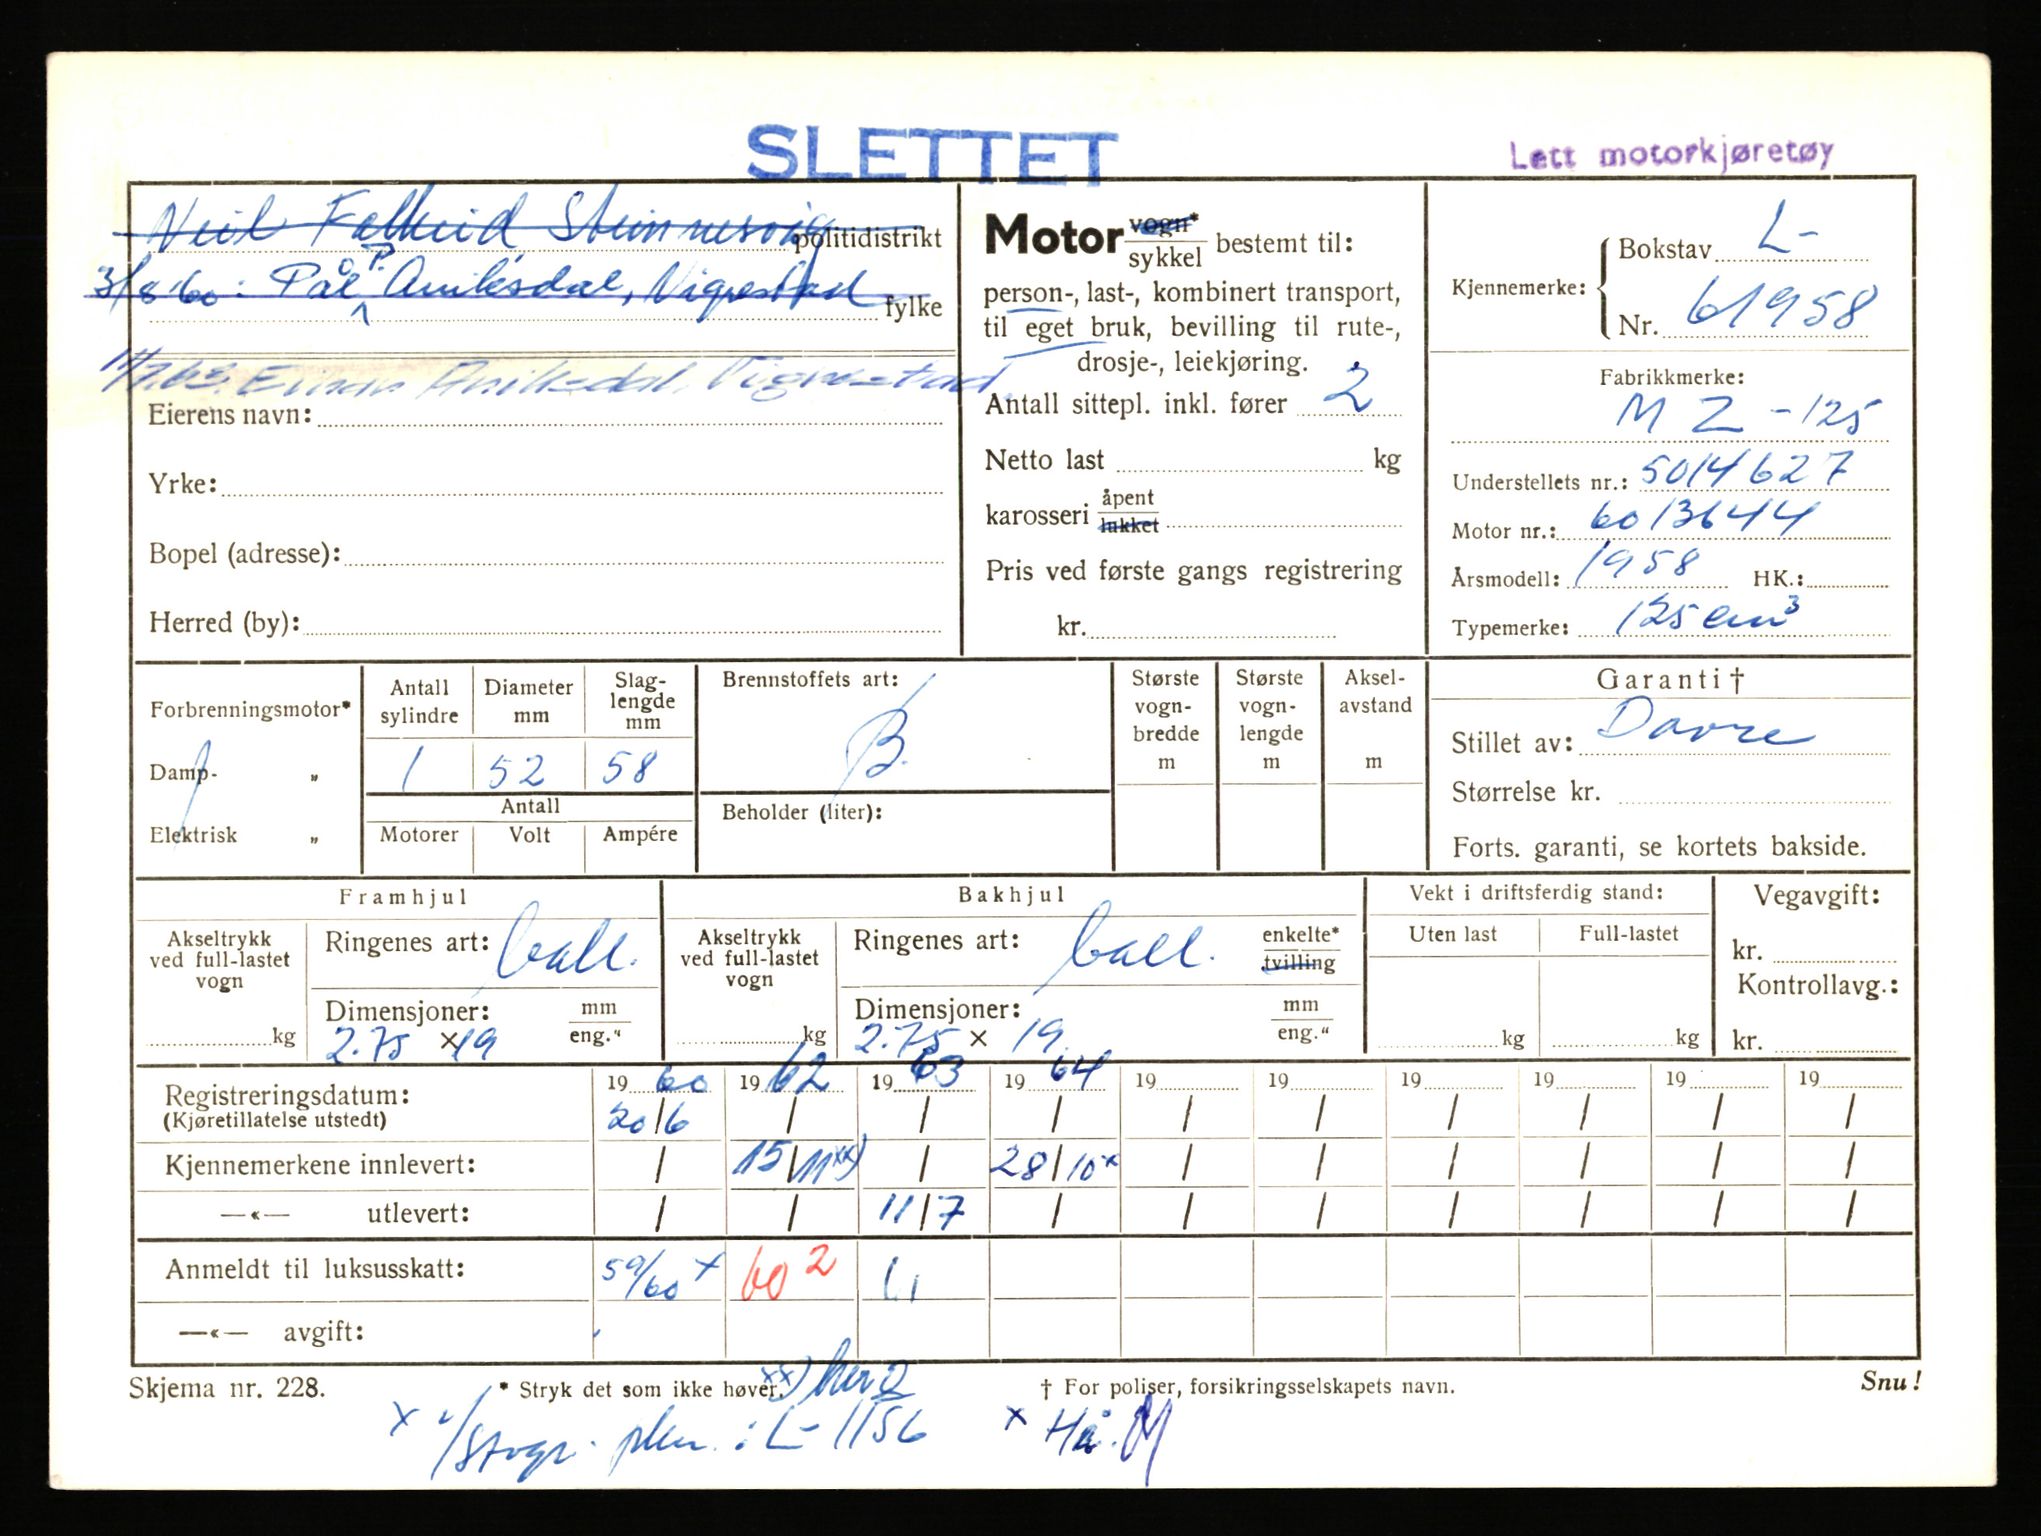 SLETTET
Lett motorkjøretøy
politidistrikt
3/8 60: Pål P. Aniksdal, Vigrestad
fylke
11/7.63. Einar Aniksdal, Vigrestad.
Eierens navn:
Yrke:
Bopel (adresse):
Herred (by):
Motor vogn* sykkel bestemt til:
person-, last-, kombinert transport,
til eget bruk, bevilling til rute-,
drosje-, leiekjøring.
Antall sittepl. inkl. fører 2
Netto last kg
karosseri åpent lukket
Pris ved første gangs registrering
kr.
Kjennemerke: Bokstav L-
Nr. 61958
Fabrikkmerke:
M Z - 125
Understellets nr.: 5014627
Motor nr.: 6013644
Årsmodell: 1958 HK.:
Typemerke: 125 cm³
Forbrenningsmotor*
Damp- „
Elektrisk „
Antall sylindre 1
Diameter mm 52
Slaglengde mm 58
Antall
Motorer Volt Ampére
Brennstoffets art:
B.
Beholder (liter):
Største vognbredde m
Største vognlengde m
Akselavstand m
Garanti †
Stillet av: Dovre
Størrelse kr.
Forts. garanti, se kortets bakside.
Framhjul
Akseltrykk ved full-lastet vogn kg
Ringenes art: ball.
Dimensjoner: mm eng."
2.75 x 19
Bakhjul
Akseltrykk ved full-lastet vogn kg
Ringenes art: ball. enkelte* tvilling
Dimensjoner: mm eng."
2.75 x 19
Vekt i driftsferdig stand:
Uten last Full-lastet
kg kg
Vegavgift:
kr.
Kontrollavg.:
kr.
Registreringsdatum: 19 60 19 62 19 63 19 64 19 19 19 19 19 19
(Kjøretillatelse utstedt) 20/6 / / / / / / / / /
Kjennemerkene innlevert: / 15/11 xx) / 28/10 x / / / / / /
—«— utlevert: / / 11/7 / / / / / / /
Anmeldt til luksusskatt: 59/60 x 60 2
—«— avgift:
Skjema nr. 228.
* Stryk det som ikke høver.
xx) her
† For poliser, forsikringsselskapets navn.
Snu!
x : L- 1156
x Hå.